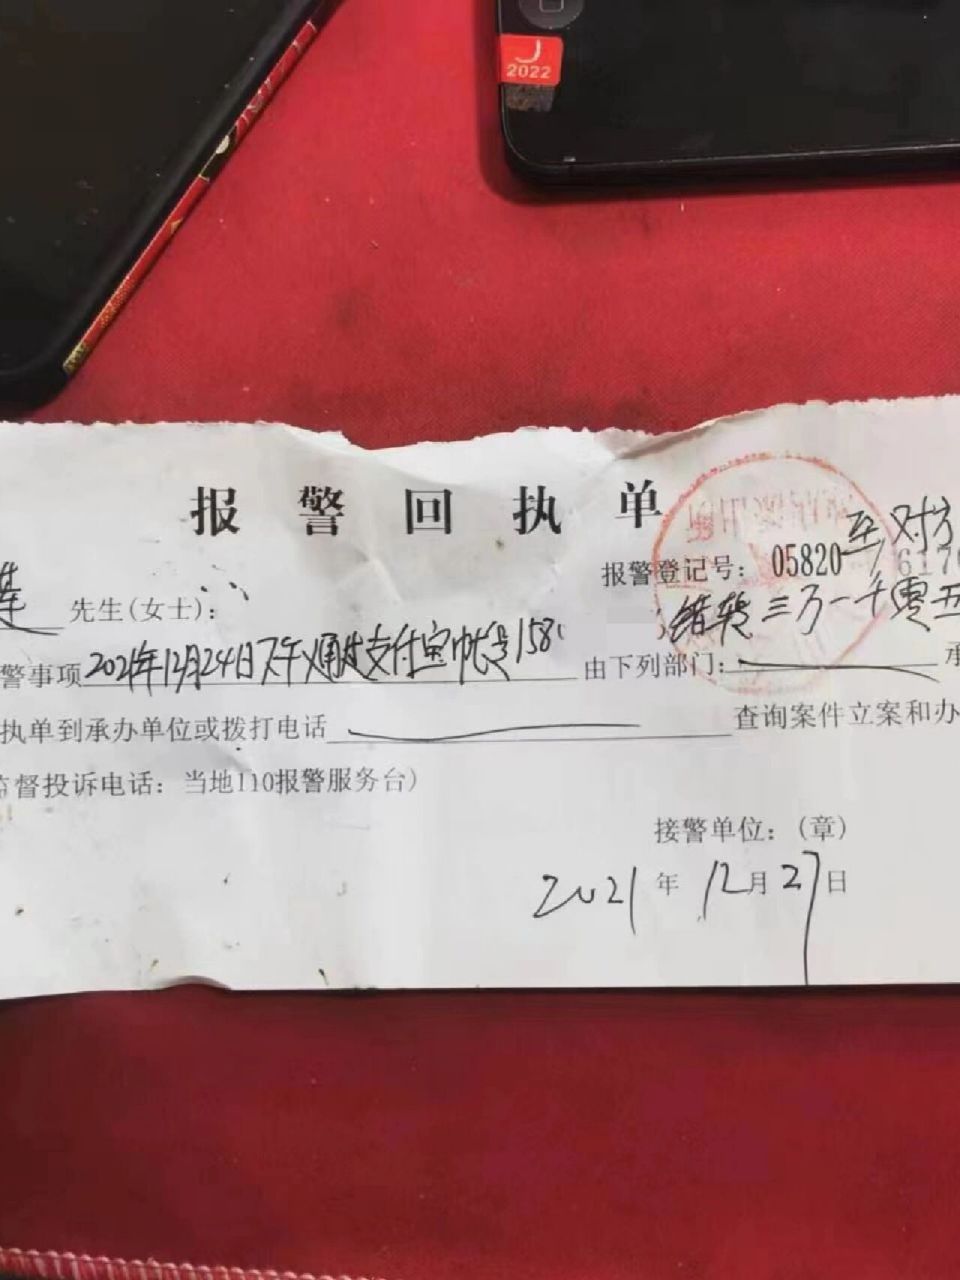 J
2022
报警回执单
报警登记号：05820
至对方
6170
莲 先生(女士)：
转 三万一千零五
警事项2021年12月24日下午 通过支付宝帐号158 由下列部门： 承
执单到承办单位或拨打电话 查询案件立案和办
监督投诉电话：当地110报警服务台)
接警单位：(章)
2021年12月27日